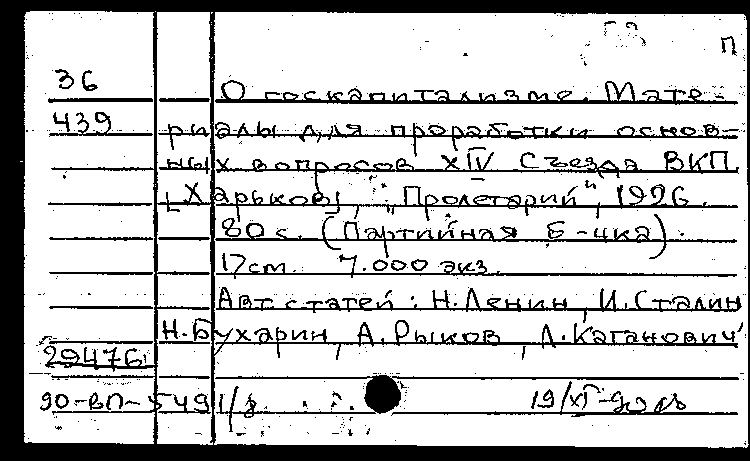 П
36 О госкапитализме. Мате-
439 риалы для проработки основ-
ных вопросов XIV Съезда ВКП.
[Харьков], "Пролетарий", 1926.
80 с. (Партийная б-чка).
17 cm. 7.000 экз.
Авт. статей: Н. Ленин, И. Сталин
Н. Бухарин, А. Рыков, Л. Каганович
29476
90-ВП-549 1/
19/XI-90